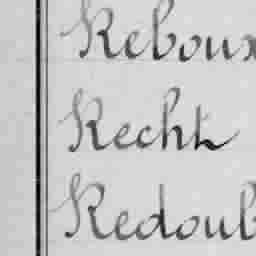 Reboux
Recht
Redoub